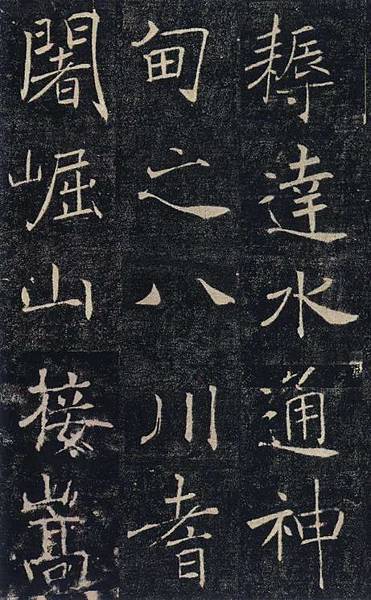 耨達水通神
甸之八川耆
闍崛山接嵩